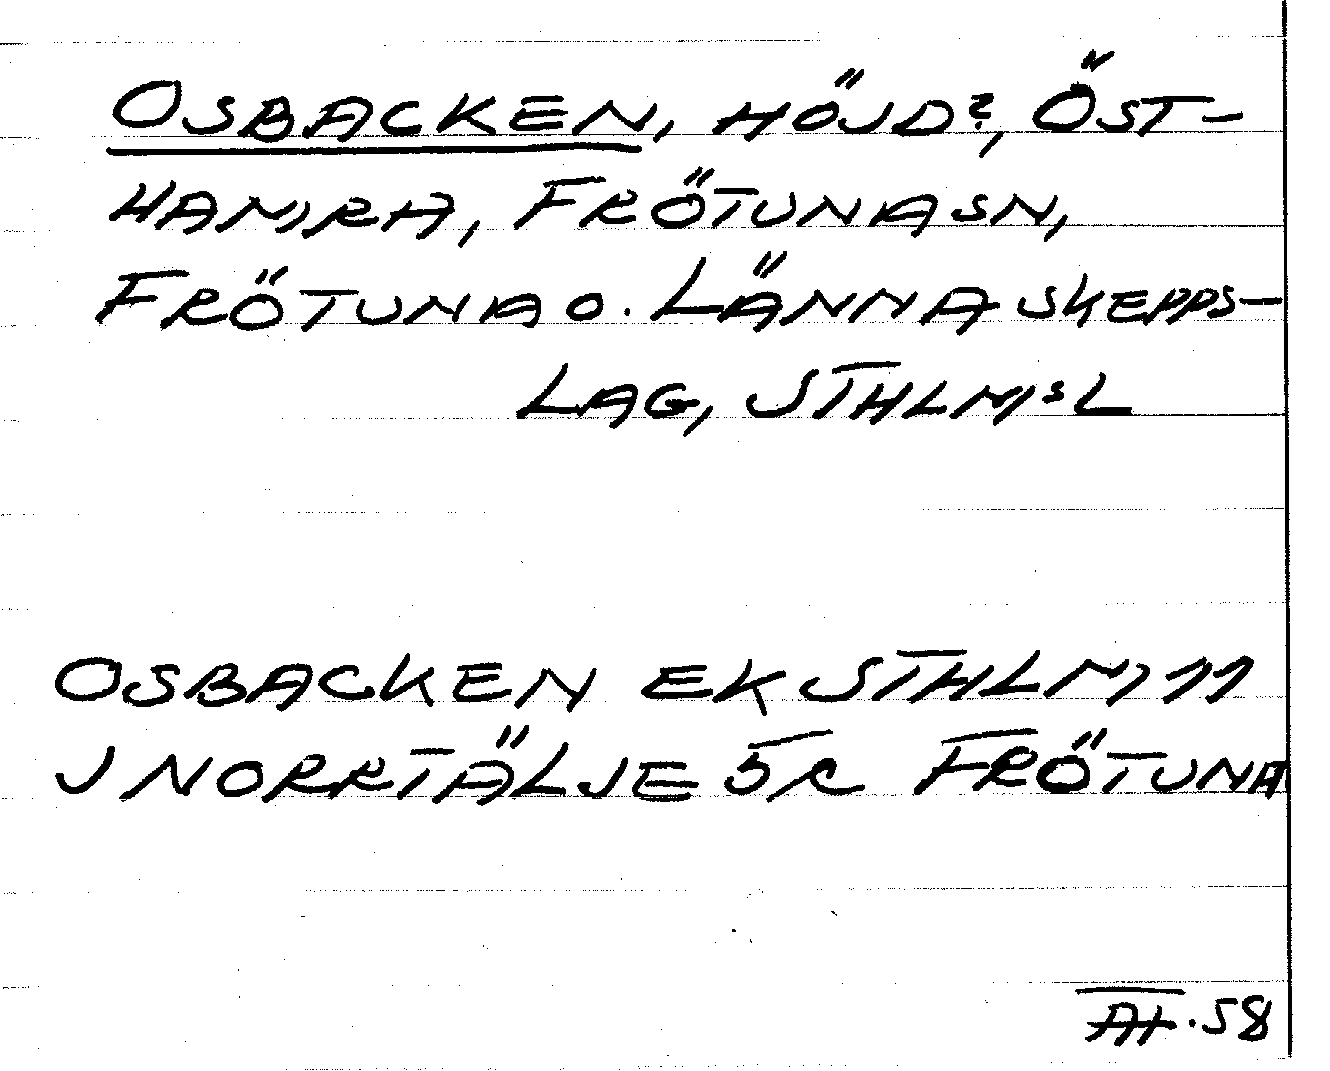 OSBACKEN, HÖJD?, ÖST-
HAMRA, FRÖTUNA SN,
FRÖTUNA O. LÄNNA SKEPPS-
LAG, STHLMS L
OSBACKEN EK STHLM 11
J NORRTÄLJE 5/C FRÖTUNA
58